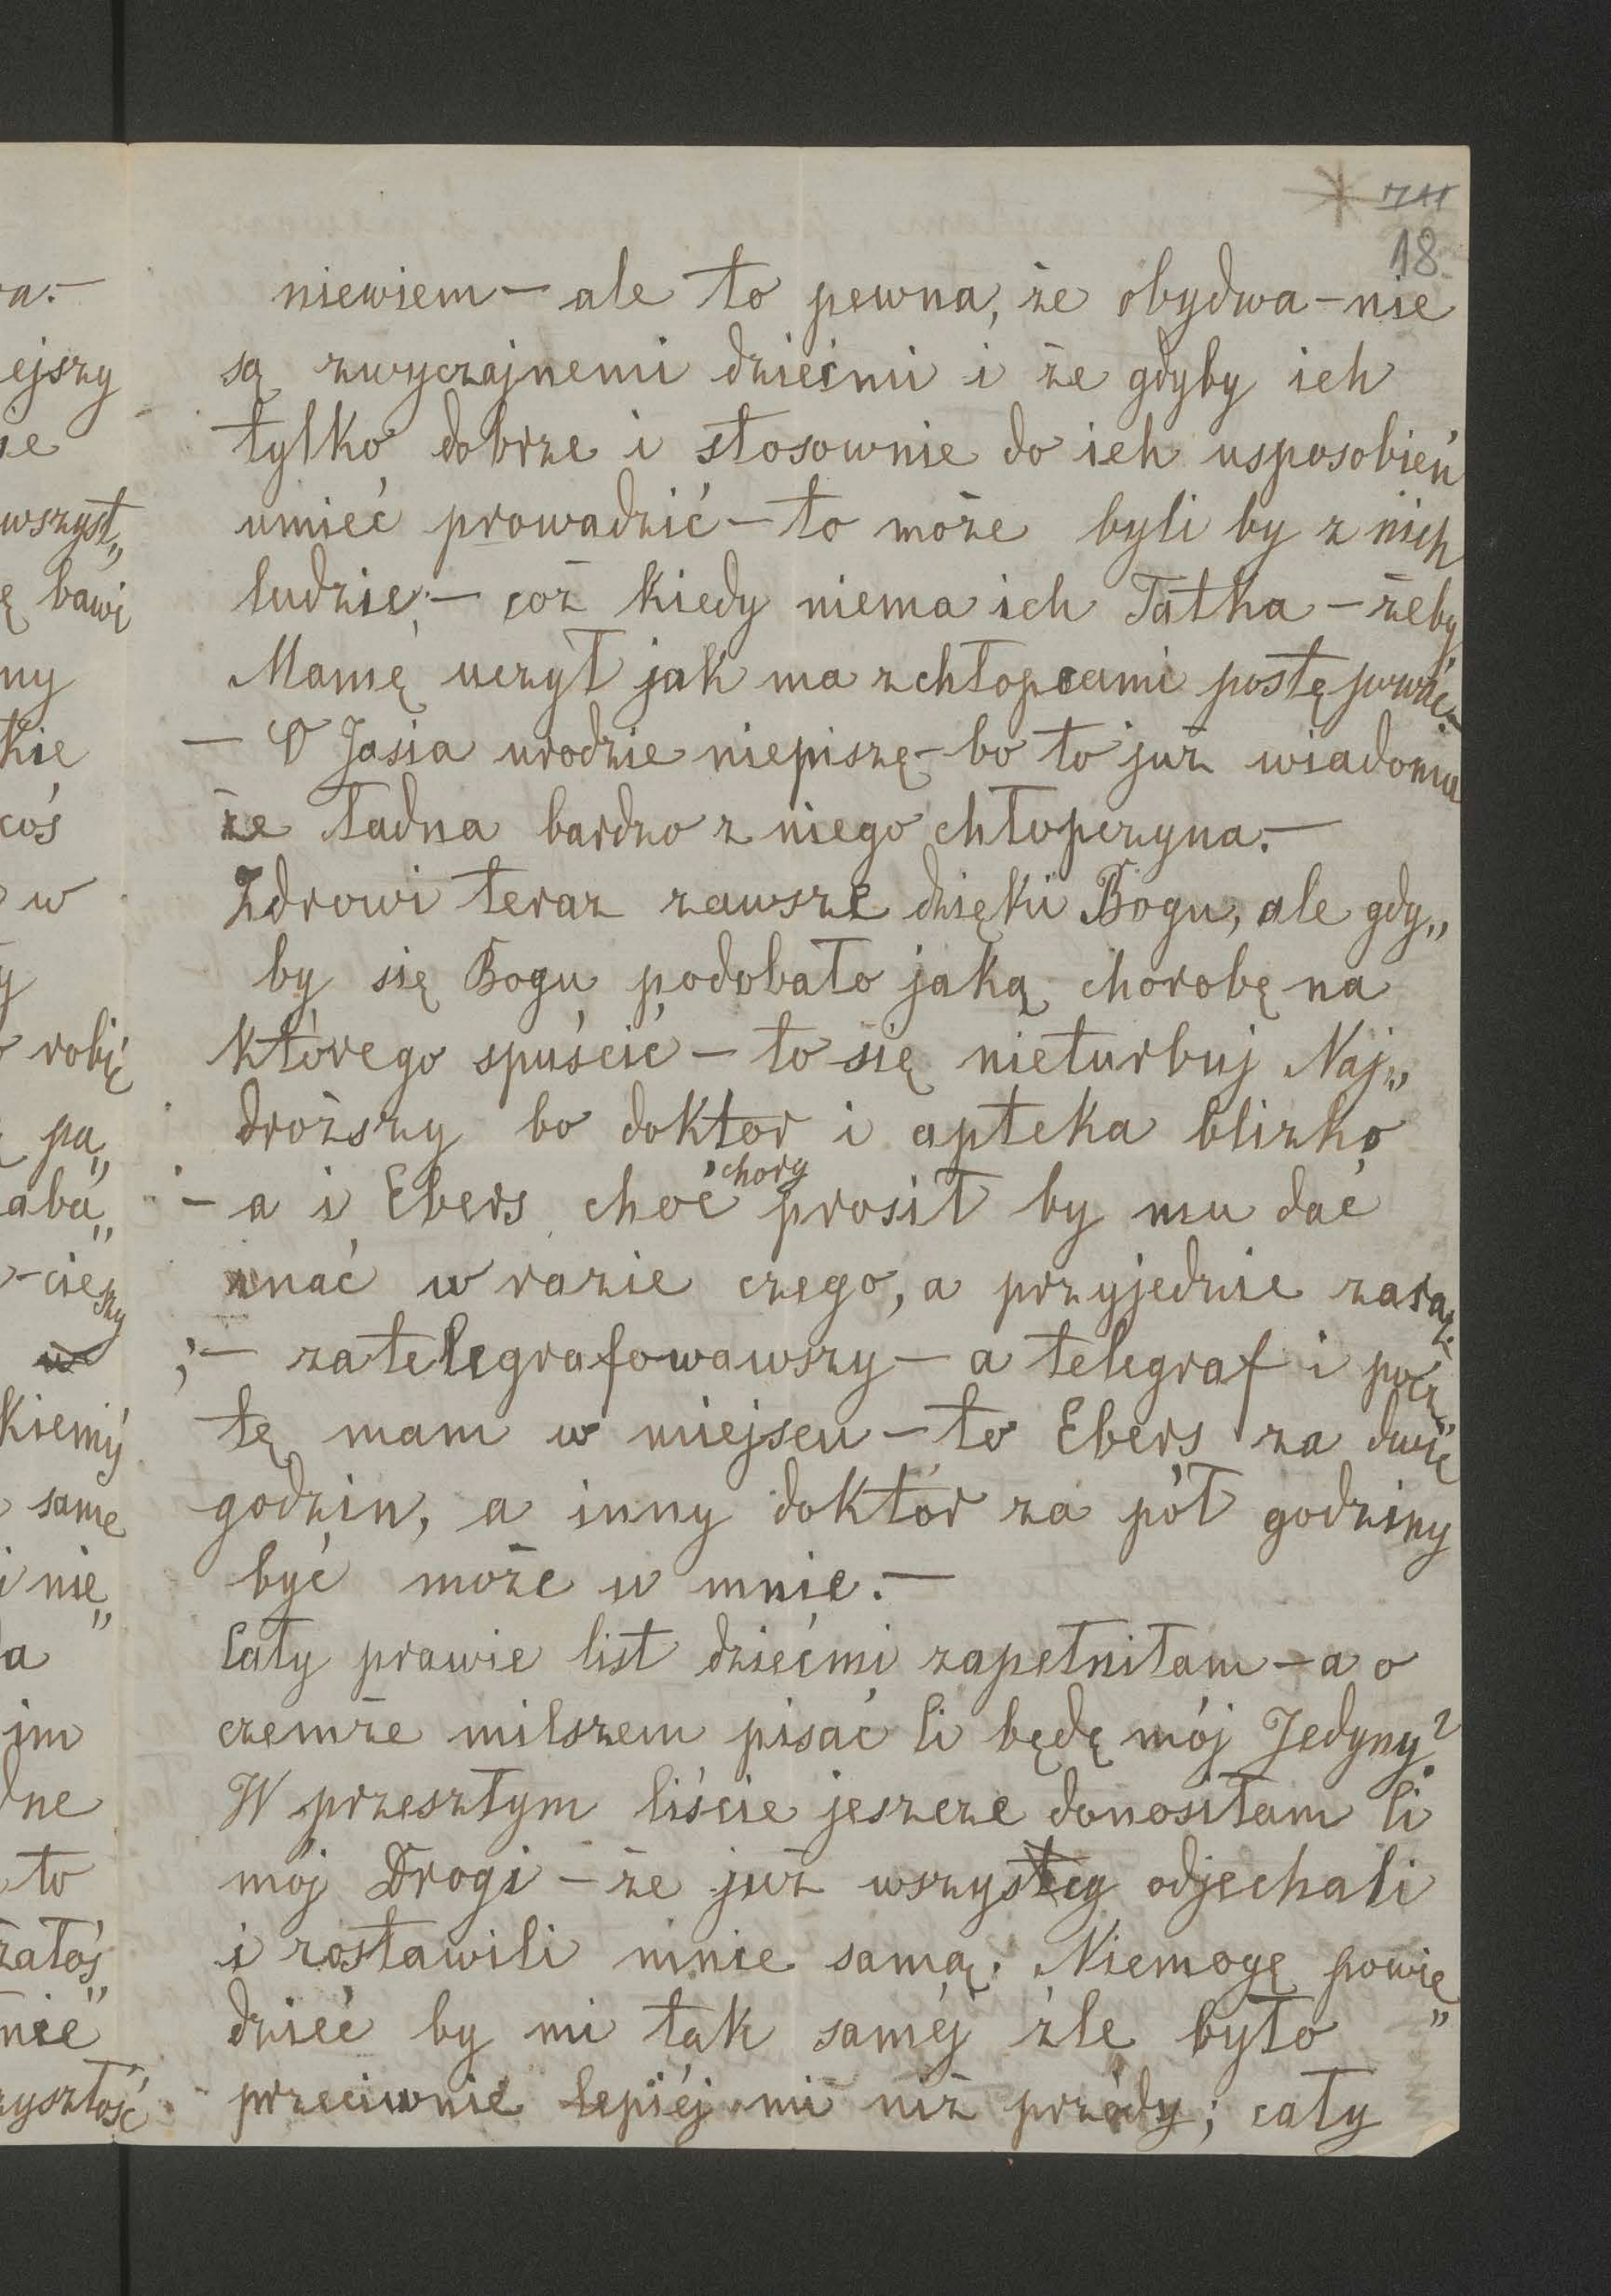 711
18
niewiem – ale to pewna, że obydwa – nie
są zwyczajnemi dziećmi i że gdyby ich
tylko dobrze i stosownie do ich usposobień
umieć prowadzić – to może byli by z nich
ludzie; – coż kiedy niema ich Tatka – żeby
Mamę uczył jak ma z chłopcami postępować. –
– O Jasia urodzie niepiszę – bo to już wiadomo
że ładna bardzo z niego chłopczyna. –
Zdrowi teraz zawsze dzięki Bogu, ale gdy„
by się Bogu podobało jaką chorobę na
którego spuścić – to się nieturbuj Naj„
droższy bo doktor i apteka blizko
– a i Ebers choć chory prosił by mu dać
znać w razie czego, a przyjedzie zaraz
; – zatelegrafowawszy – a telegraf i pocz„
tę mam w miejscu – to Ebers za dwie
godzin, a inny doktór za pół godziny
być może u mnie. –
Cały prawie list dziećmi zapełniłam – a o
czemże milszem pisać Ci będę mój Jedyny?
W przeszłym liście jeszcze donosiłam Ci
mój Drogi – że już wszyscy odjechali
i zostawili mnie samą. Niemogę powie„
dzieć by mi tak saméj źle było
przeciwnie lepiéj mi niż przódy; cały
ra. –
ejszy
ie
wszyst„
ę bawi
ny
kie
coś
w
y
robię
pa„
aba„
-cieszy
kiemy
same
i nie„
a
im
dne
to
załoś„
nie
zyszłość